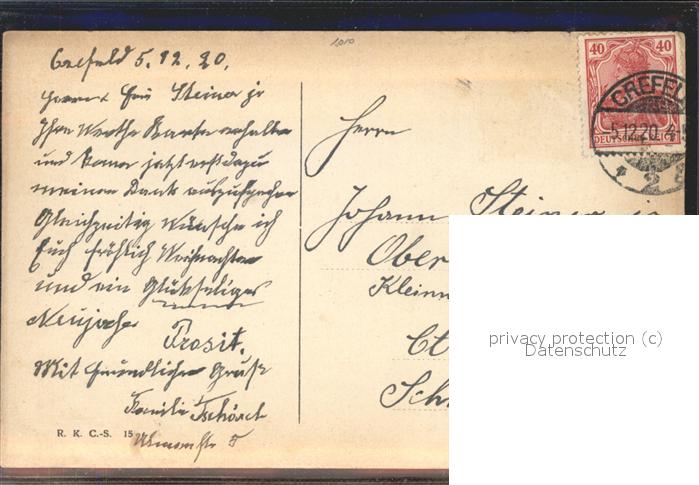 Crefeld 5.12.20.
Herrn & Frau Steiner jr
Ihre Werthe Karte erhalten
und kann jetzt erst dazu
meinen Dank auszusprechen
Gleichzeitig wünsche ich
Euch fröhlich Weihnachten
und ein Glückseliges
Neujahr Prosit.
Mit freundlichem Gruß
Familie
R. K. C.-S. 15
1010
40 40
DEUTSCHES REICH
CREFEL
5.12.20. 4
* 2
Herrn
Johann Steiner jr
Ober
Klein
Ct
Sch
privacy protection (c)
Datenschutz